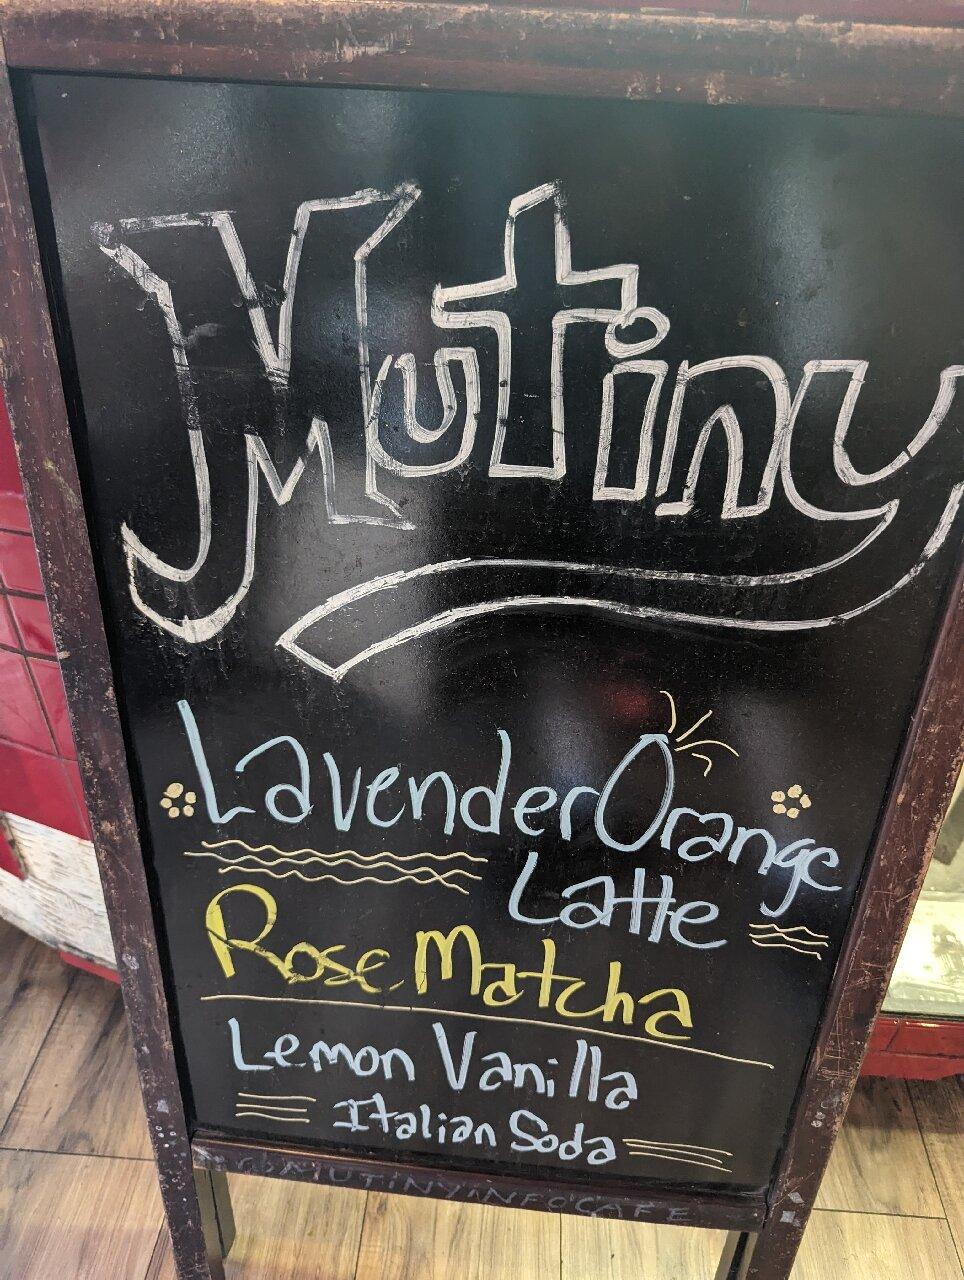 Mutiny
Lavender Orange
Latte
Rose Matcha
Lemon Vanilla
Italian Soda
MUTINYINFOCAFE